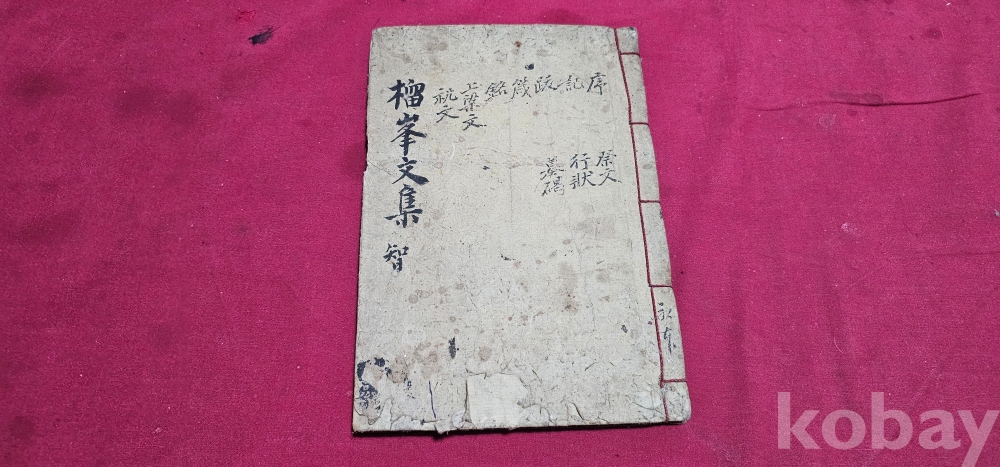 榴峯文集 智
序
記
跋
箴
銘
上梁文
祝文
祭文
行狀
墓碣
kobay